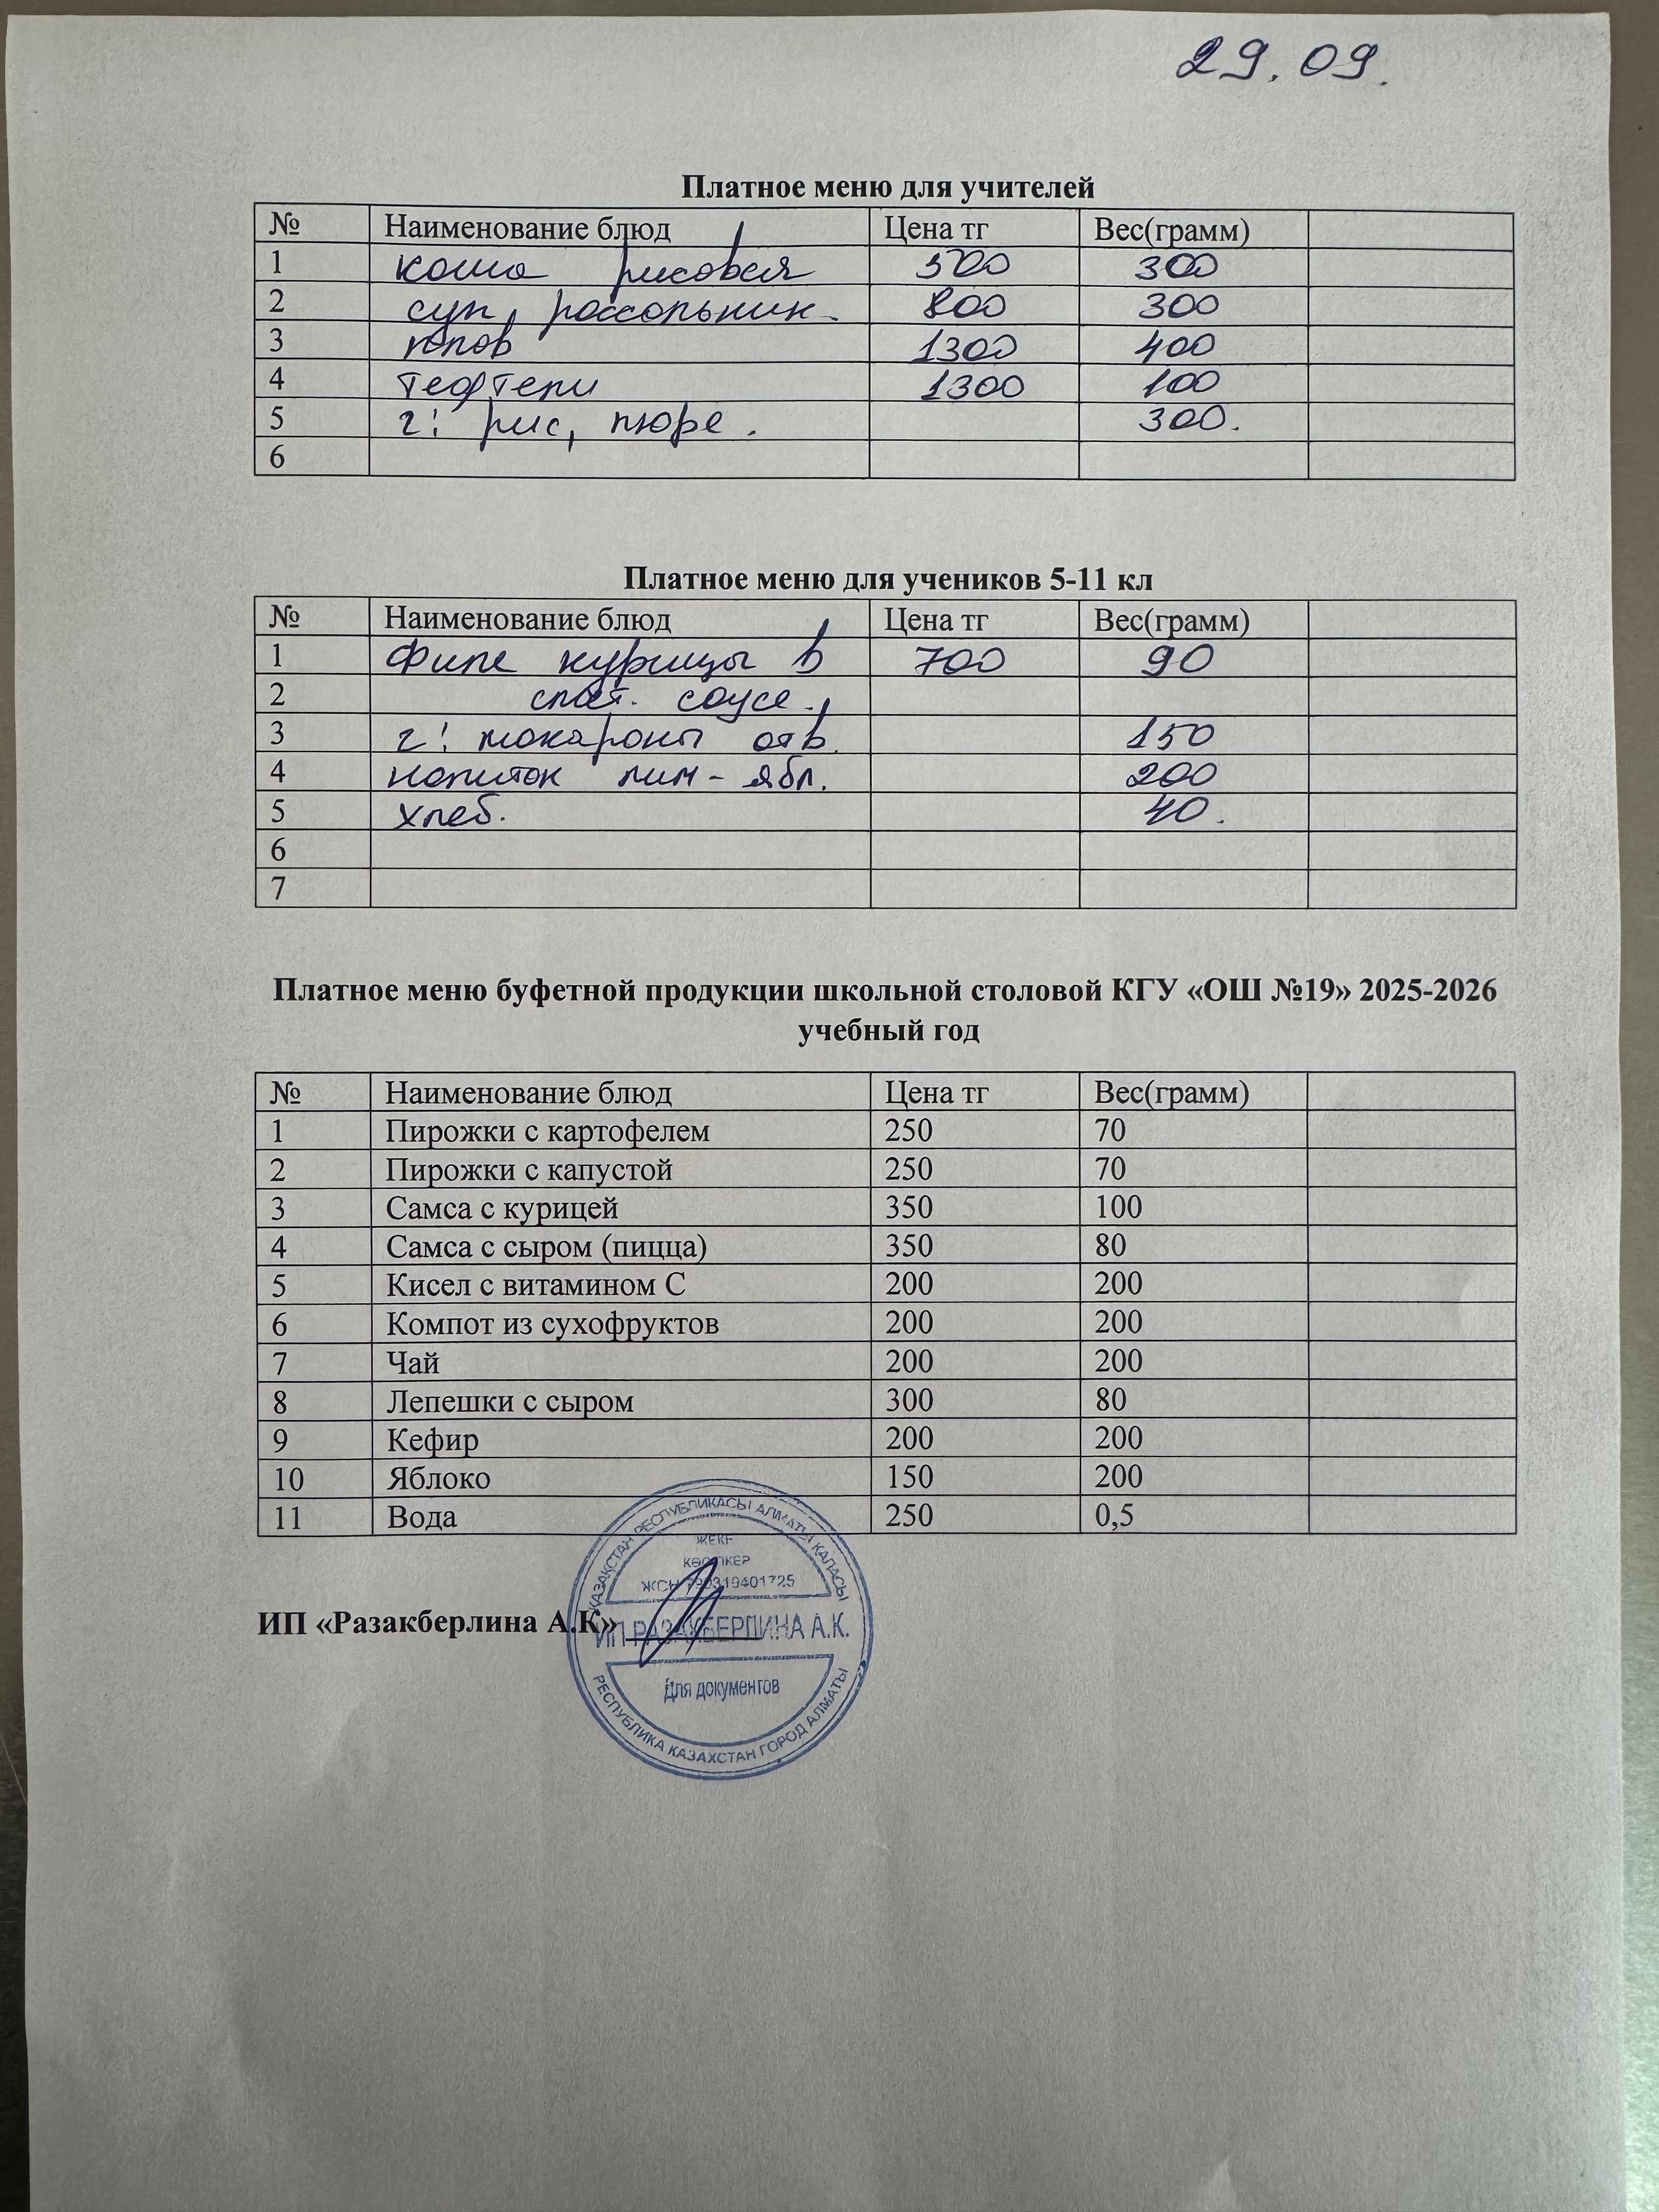 29.09.
Платное меню для учителей
№ Наименование блюд Цена тг Вес(грамм)
1 каша рисовая 500 300
2 суп рассольник. 800 300
3 плов 1300 400
4 тефтели 1300 100
5 г: рис, пюре. 300.
6
Платное меню для учеников 5-11 кл
№ Наименование блюд Цена тг Вес(грамм)
1 Филе курицы в 700 90
2 смет. соусе.
3 г: макароны отв. 150
4 напиток лим-ябл. 200
5 хлеб. 40.
6
7
Платное меню буфетной продукции школьной столовой КГУ «ОШ №19» 2025-2026
учебный год
№ Наименование блюд Цена тг Вес(грамм)
1 Пирожки с картофелем 250 70
2 Пирожки с капустой 250 70
3 Самса с курицей 350 100
4 Самса с сыром (пицца) 350 80
5 Кисел с витамином С 200 200
6 Компот из сухофруктов 200 200
7 Чай 200 200
8 Лепешки с сыром 300 80
9 Кефир 200 200
10 Яблоко 150 200
11 Вода 250 0,5
ҚАЗАҚСТАН РЕСПУБЛИКАСЫ АЛМАТЫ ҚАЛАСЫ
ЖЕКЕ
КӘСІПКЕР
ЖСН
ИП «Разакберлина А.К»
ИП РАЗАКБЕРЛИНА А.К.
Для документов
РЕСПУБЛИКА КАЗАХСТАН ГОРОД АЛМАТЫ